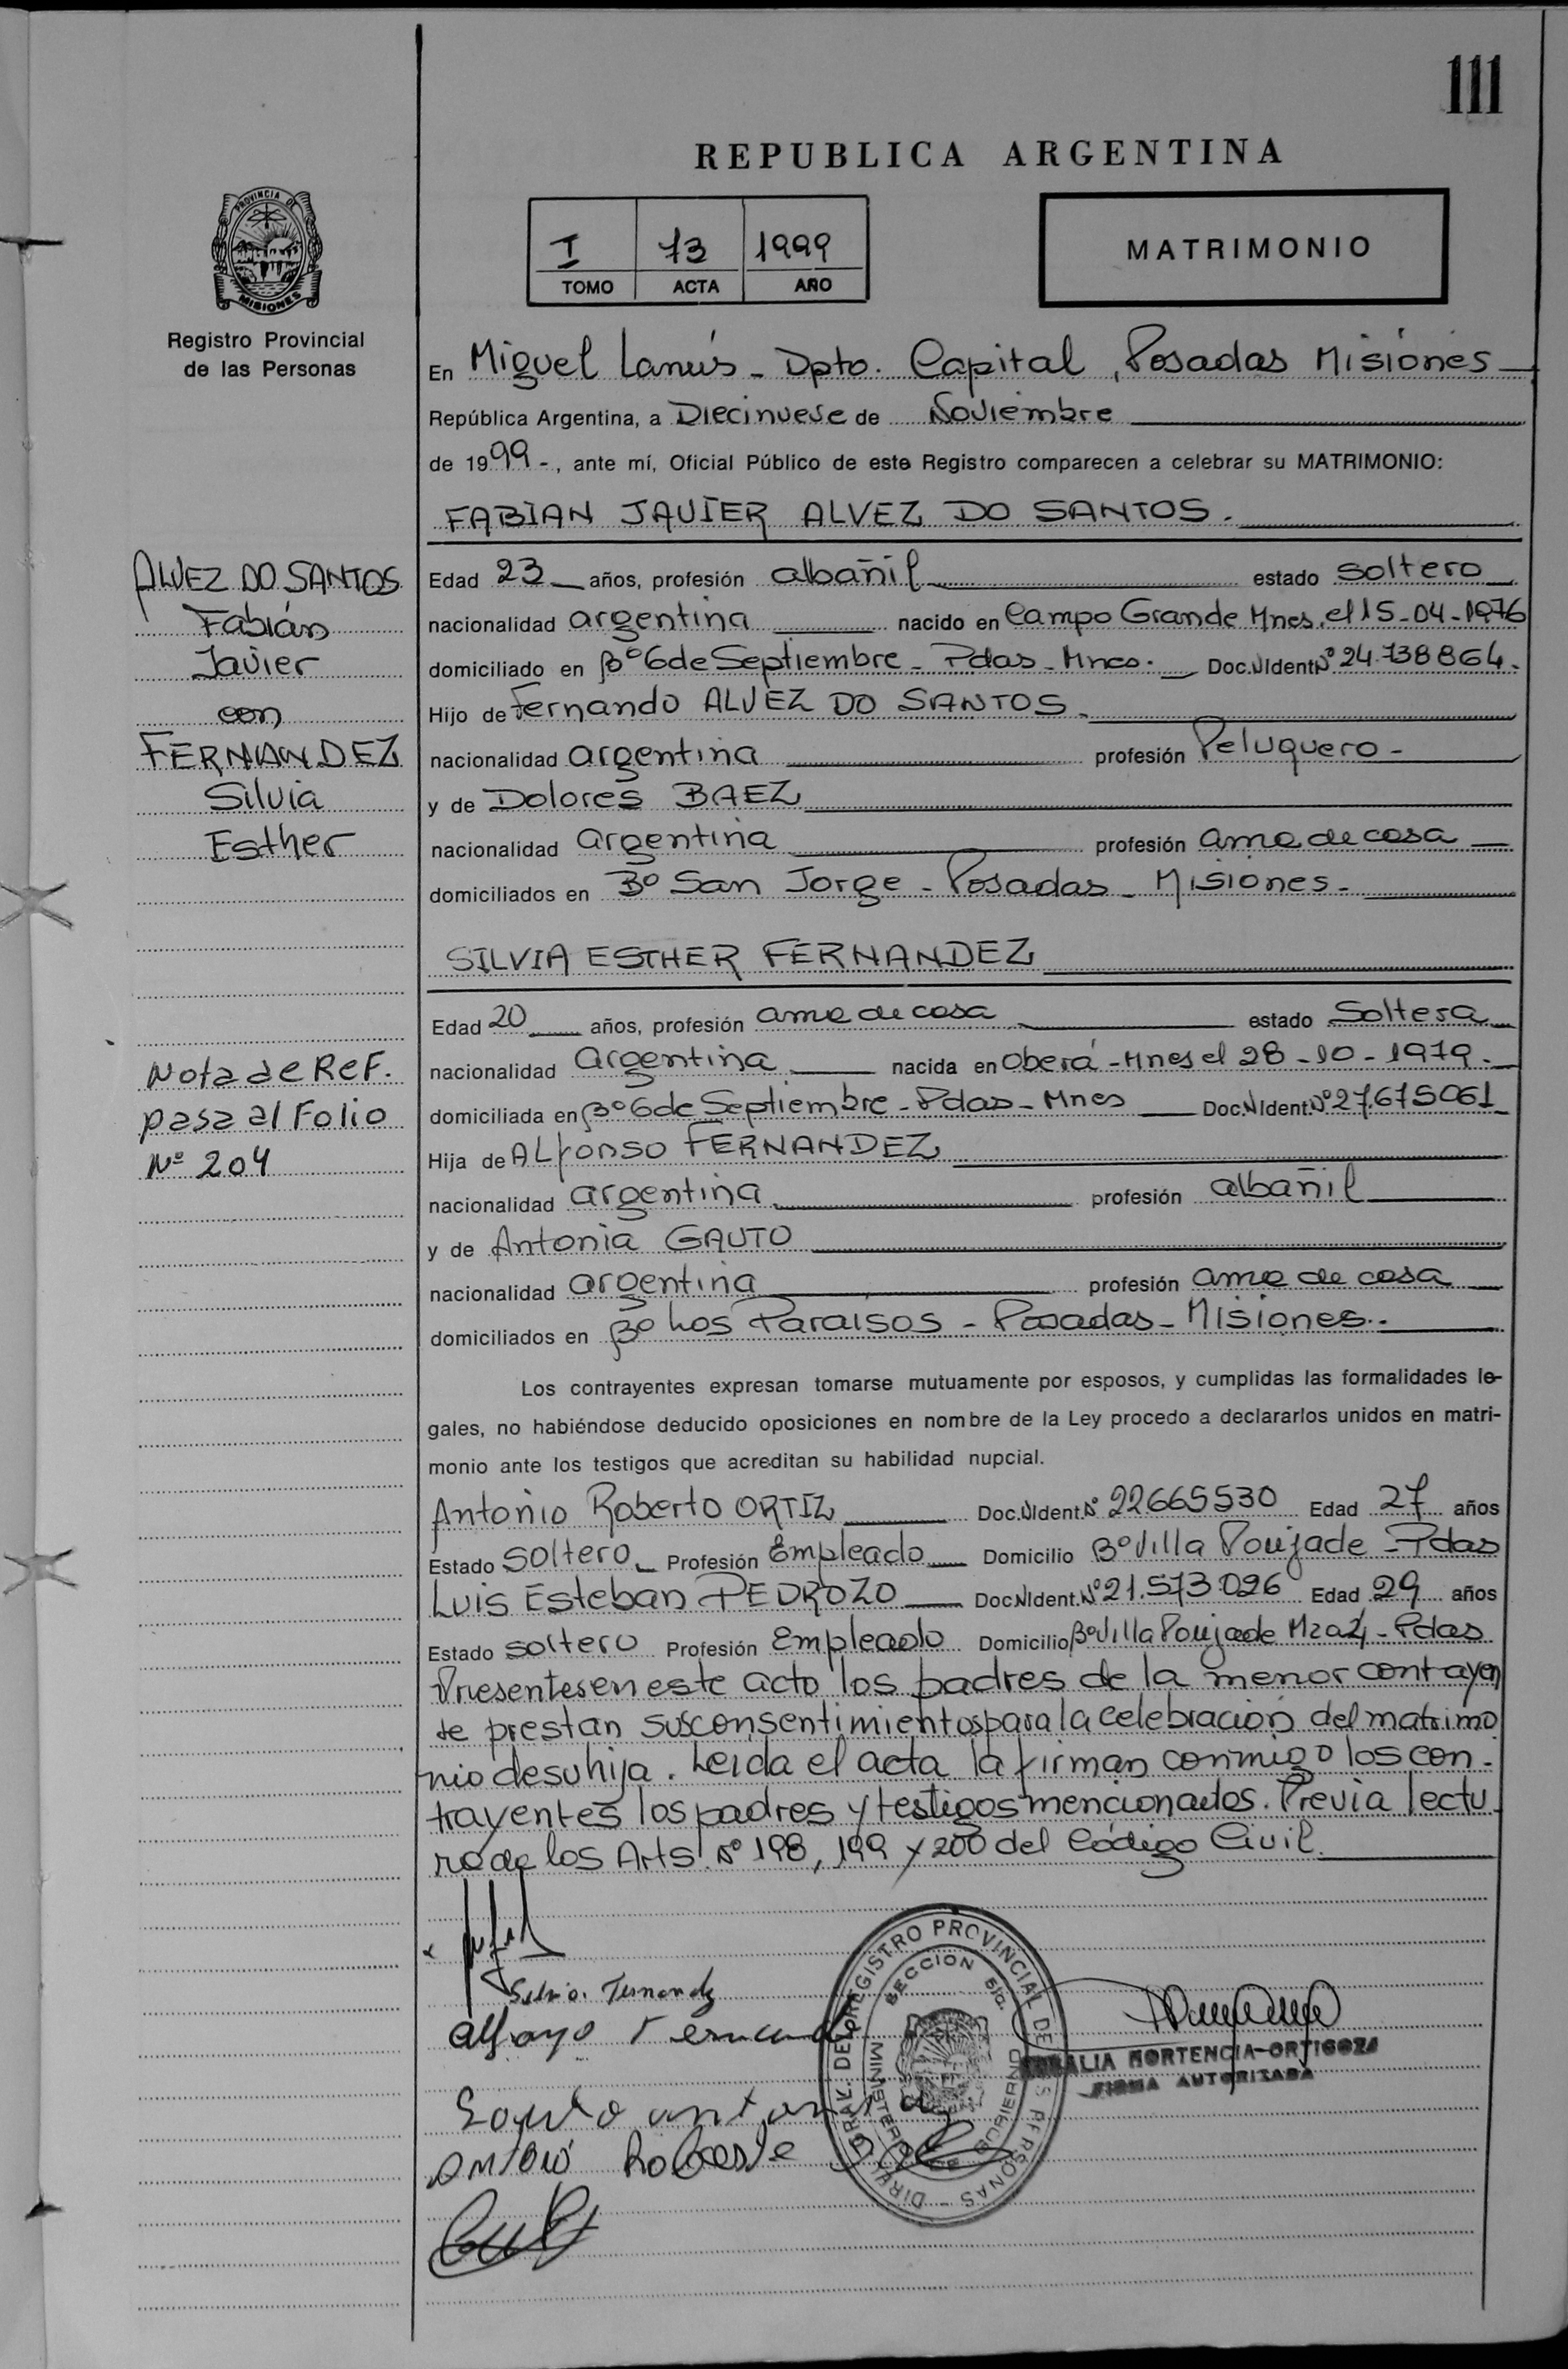 111
REPUBLICA ARGENTINA
PROVINCIA DE
MISIONES
Registro Provincial
de las Personas
I 73 1999
TOMO ACTA AÑO
MATRIMONIO
En Miguel Lanús - Dpto. Capital, Posadas Misiones
República Argentina, a Diecinueve de Noviembre
de 1999-, ante mí, Oficial Público de este Registro comparecen a celebrar su MATRIMONIO:
FABIAN JAVIER ALVEZ DO SANTOS.
ALVEZ DO SANTOS
Fabián
Javier
con
FERNANDEZ
Silvia
Esther
Edad 23 años, profesión albañil estado soltero
nacionalidad argentina nacido en Campo Grande Mnes. el 15-04-1976
domiciliado en Bº 6 de Septiembre - Pdas - Mnes. Doc. N Ident Nº 24.738864.
Hijo de Fernando ALVEZ DO SANTOS.
nacionalidad argentina profesión Peluquero-
y de Dolores BAEZ
nacionalidad argentina profesión ama de casa
domiciliados en Bº San Jorge - Posadas - Misiones-
SILVIA ESTHER FERNANDEZ
Edad 20 años, profesión ama de casa estado Soltera
nacionalidad argentina nacida en Oberá - Mnes el 28-10-1979.
domiciliada en Bº 6 de Septiembre - Pdas - Mnes Doc. N Ident. Nº 27.675061
Hija de ALfonso FERNANDEZ
nacionalidad argentina profesión albañil
y de Antonia GAUTO
nacionalidad argentina profesión ama de casa
domiciliados en Bº Los Paraisos - Posadas - Misiones.-
Nota de Ref.
pasa al Folio
Nº 204
Los contrayentes expresan tomarse mutuamente por esposos, y cumplidas las formalidades le-
gales, no habiéndose deducido oposiciones en nombre de la Ley procedo a declararlos unidos en matri-
monio ante los testigos que acreditan su habilidad nupcial.
Antonio Roberto ORTIZ Doc. N Ident. Nº 22665530 Edad 27 años
Estado soltero Profesión Empleado Domicilio Bº Villa Poujade - Pdas
Luis Esteban PEDROZO Doc. N Ident. Nº 21.573.026 Edad 29 años
Estado soltero Profesión Empleado Domicilio Bº Villa Poujade Mza 4 - Pdas
Presentes en este acto los padres de la menor contrayen
te prestan sus consentimientos para la celebración del matrimo
nio de su hija. Leida el acta la firman conmigo los con-
trayentes los padres y testigos mencionados. Previa lectu
ra de los Arts. Nº 198, 199 y 200 del Código Civil.
Silvia. Fernandez
Gauto antonia
Antonio Roberto
DIRE. GRAL. DEL REGISTRO PROVINCIAL DE LAS PERSONAS
SECCION 5ta.
MINISTERIO DE GOBIERNO
HORTENCIA ORTIGOZA
FIRMA AUTORIZADA